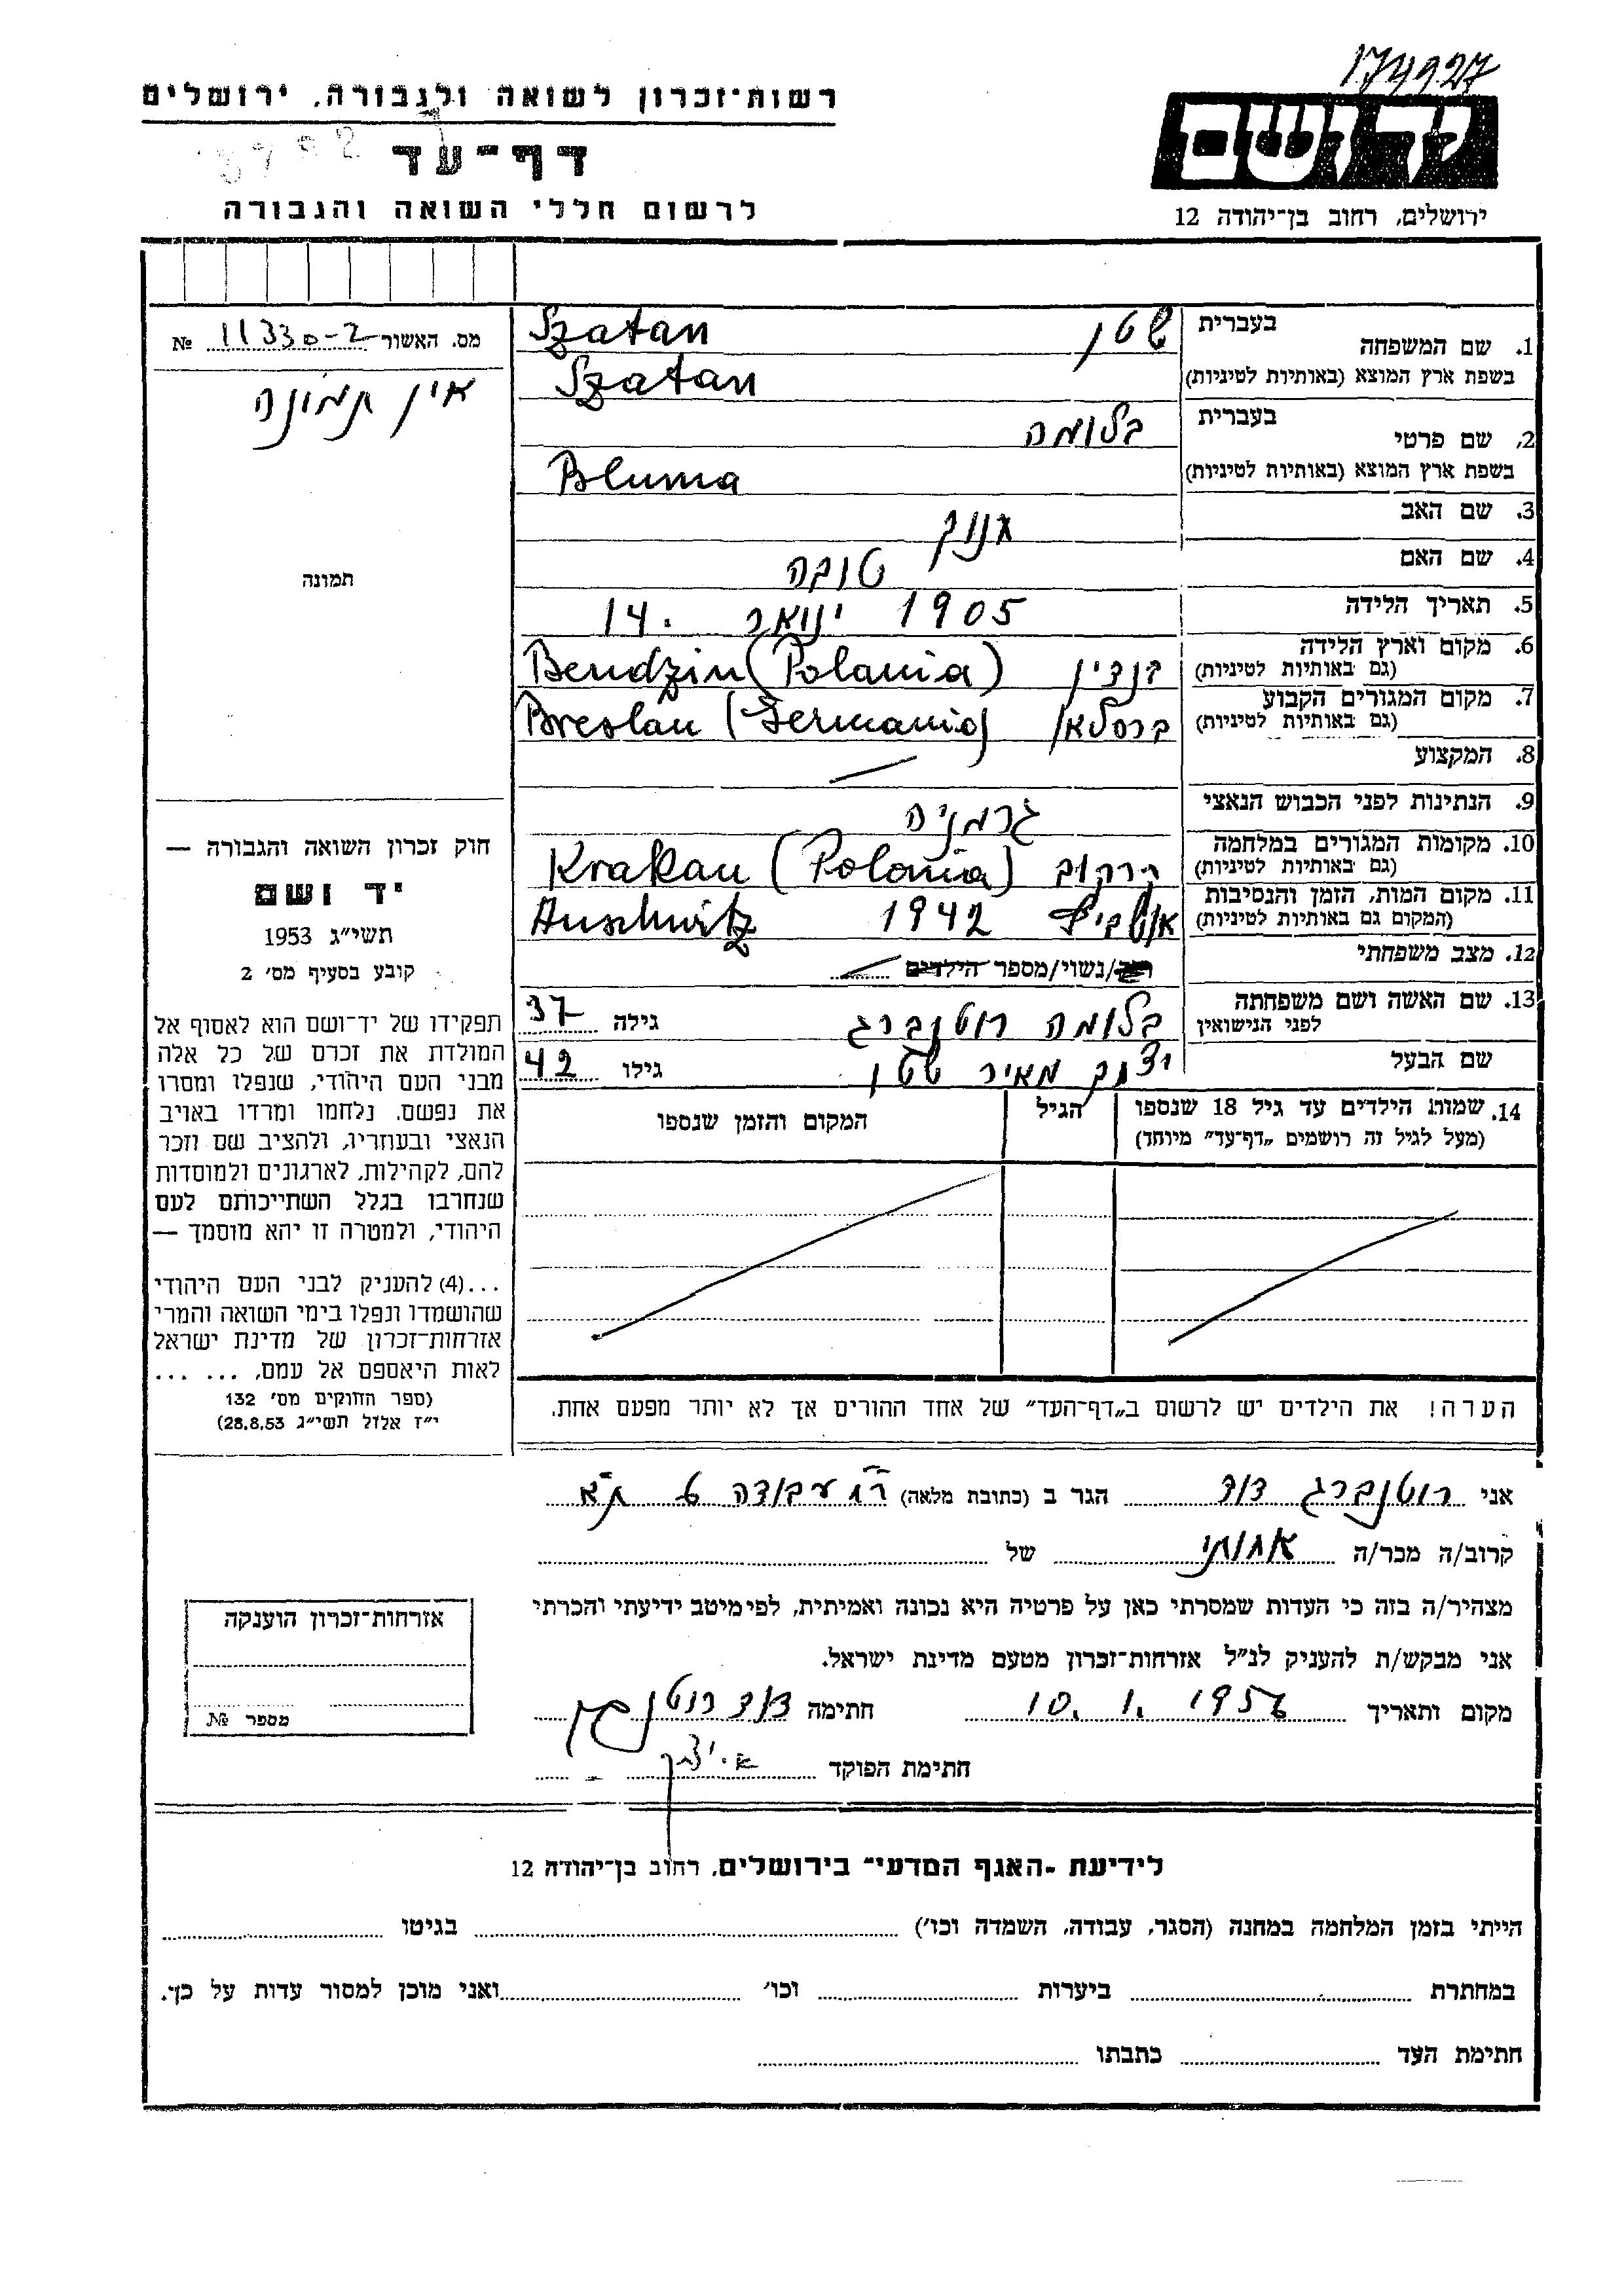 174927
רשות־זכרון לשואה ולגבורה, ירושלים
ידושם
דף־עד
לרשום חללי השואה והגבורה
ירושלים, רחוב בן־יהודה 12
מס. האשור 11330-2 №
אין תמונה
תמונה
1. שם המשפחה
בעברית שטן Szatan
בשפת ארץ המוצא (באותיות לטיניות) Szatan
2. שם פרטי
בעברית בלומה
בשפת ארץ המוצא (באותיות לטיניות) Bluma
3. שם האב חנוך
4. שם האם טובה
5. תאריך הלידה 14. ינואר 1905
6. מקום וארץ הלידה
(גם באותיות לטיניות) בנדין Bendzin (Polania)
7. מקום המגורים הקבוע
(גם באותיות לטיניות) ברסלאו Breslau (Germania)
8. המקצוע
9. הנתינות לפני הכבוש הנאצי גרמניה
10. מקומות המגורים במלחמה
(גם באותיות לטיניות) קרקוב Krakau (Polonia)
11. מקום המות, הזמן והנסיבות
(המקום גם באותיות לטיניות) אושביץ 1942 Auschwitz
12. מצב משפחתי רוק/נשוי/מספר הילדים
13. שם האשה ושם משפחתה
לפני הנישואין בלומה רוטנברג גילה 37
שם הבעל יצחק מאיר שטן גילו 42
14. שמות הילדים עד גיל 18 שנספו
(מעל לגיל זה רושמים „דף־עד” מיוחד)
הגיל
המקום והזמן שנספו
הערה! את הילדים יש לרשום ב„דף־העד” של אחד ההורים אך לא יותר מפעם אחת.
חוק זכרון השואה והגבורה —
יד ושם
תשי״ג 1953
קובע בסעיף מס׳ 2
תפקידו של יד־ושם הוא לאסוף אל
המולדת את זכרם של כל אלה
מבני העם היהודי, שנפלו ומסרו
את נפשם, נלחמו ומרדו באויב
הנאצי ובעוזריו, ולהציב שם וזכר
להם, לקהילות, לארגונים ולמוסדות
שנחרבו בגלל השתייכותם לעם
היהודי, ולמטרה זו יהא מוסמך —
...(4) להעניק לבני העם היהודי
שהושמדו ונפלו בימי השואה והמרי
אזרחות־זכרון של מדינת ישראל
לאות היאספם אל עמם, ... ...
(ספר החוקים מס׳ 132
י״ז אלול תשי״ג 28.8.53)
אני רוטנברג דוד הגר ב (כתובת מלאה) רח׳ עבודה 6 ת״א
קרוב/ה מכר/ה אחותי של
מצהיר/ה בזה כי העדות שמסרתי כאן על פרטיה היא נכונה ואמיתית, לפי מיטב ידיעתי והכרתי
אני מבקש/ת להעניק לנ״ל אזרחות־זכרון מטעם מדינת ישראל.
מקום ותאריך 10.1.1956 חתימה דוד רוטנברג
חתימת הפוקד
אזרחות־זכרון הוענקה
מספר №
לידיעת „האגף המדעי” בירושלים, רחוב בן־יהודה 12
הייתי בזמן המלחמה במחנה (הסגר, עבודה, השמדה וכו׳) בגיטו
במחתרת ביערות וכו׳ ואני מוכן למסור עדות על כך.
חתימת העד כתבתו